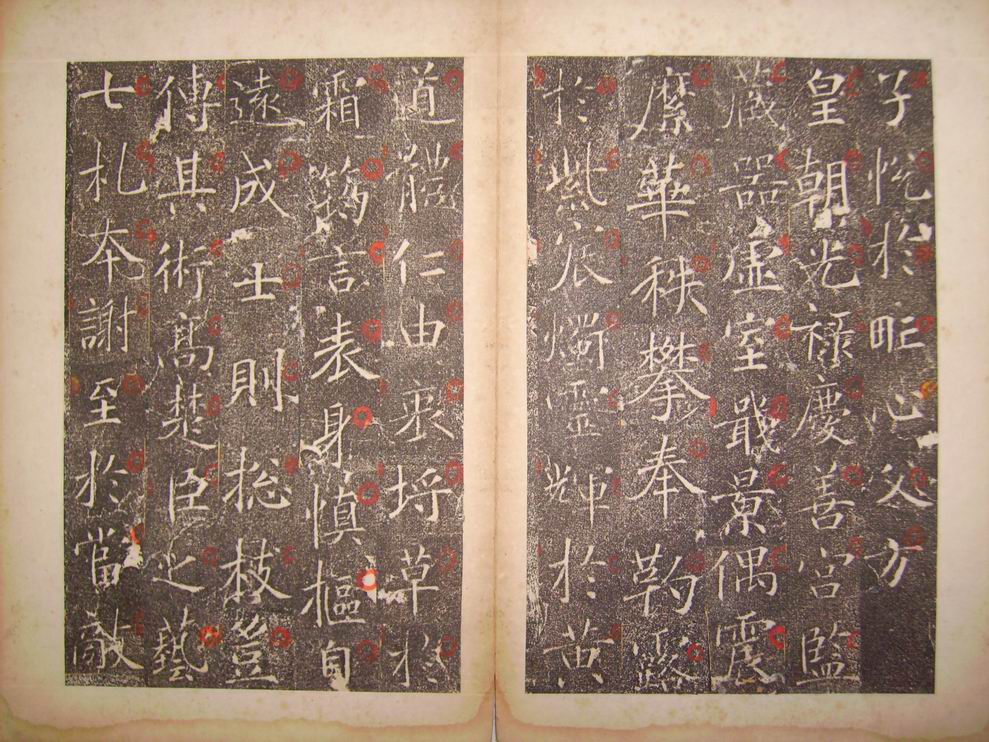 子悅於町心父方
皇朝光祿慶善宮監
蔵器虛室戢景偶震
縻華秩攀奉鞠露
於紫宸爥靈輝於黄
道體仁由衷埒草於
霜筠言表身慎樞自
遠成士則揔枝豈
傳其術髙楚臣之藝
七札夲謝至於當敵